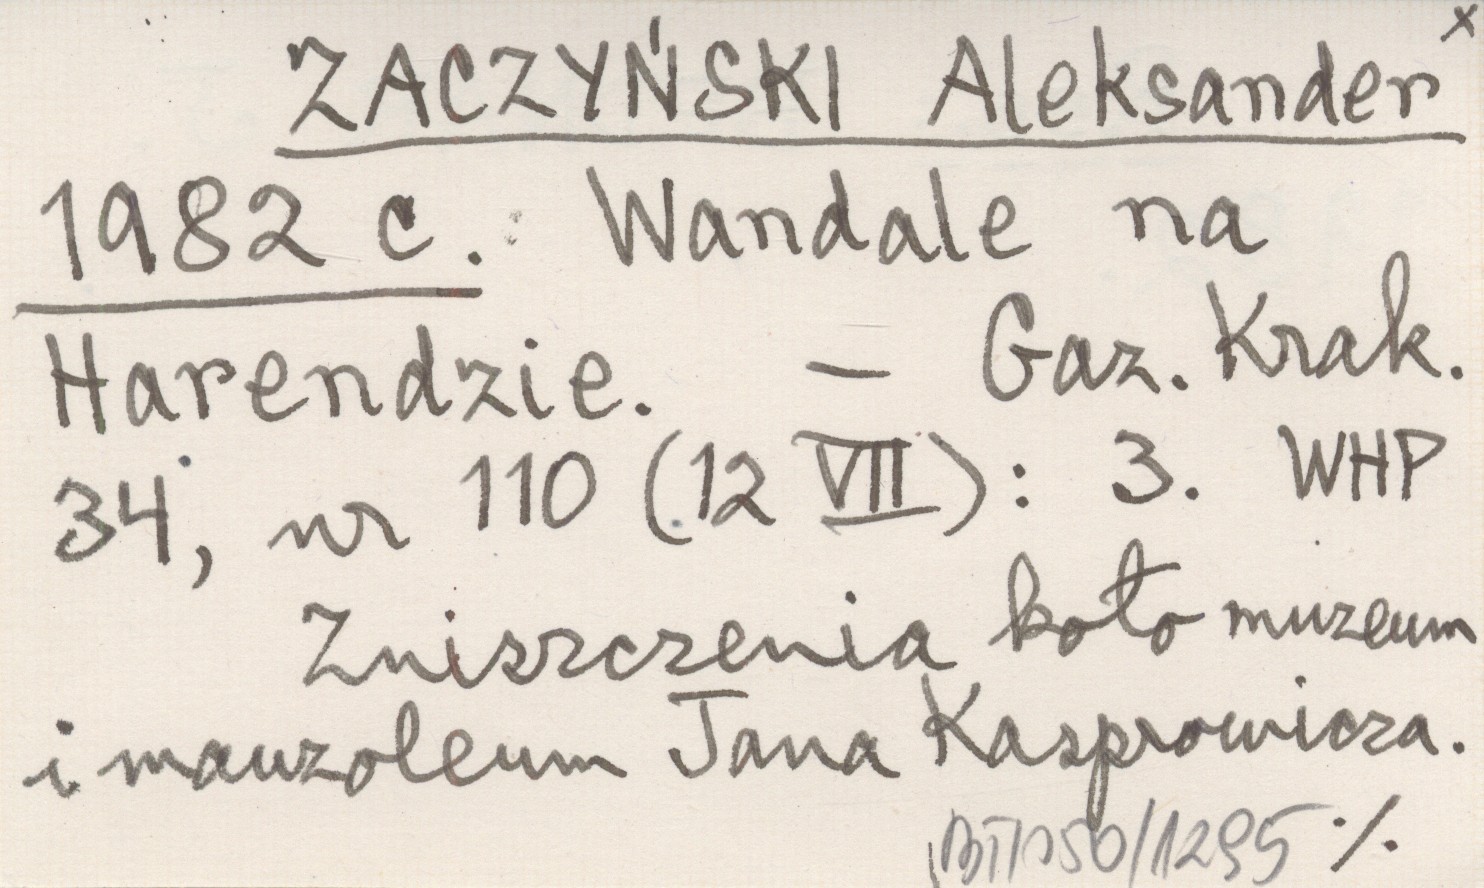 x
ZACZYŃSKI Aleksander
1982 c. Wandale na
Harendzie. – Gaz. Krak.
34, nr 110 (12 VII): 3. WHP
Zniszczenia koło muzeum
i mauzoleum Jana Kasprowicza.
./.